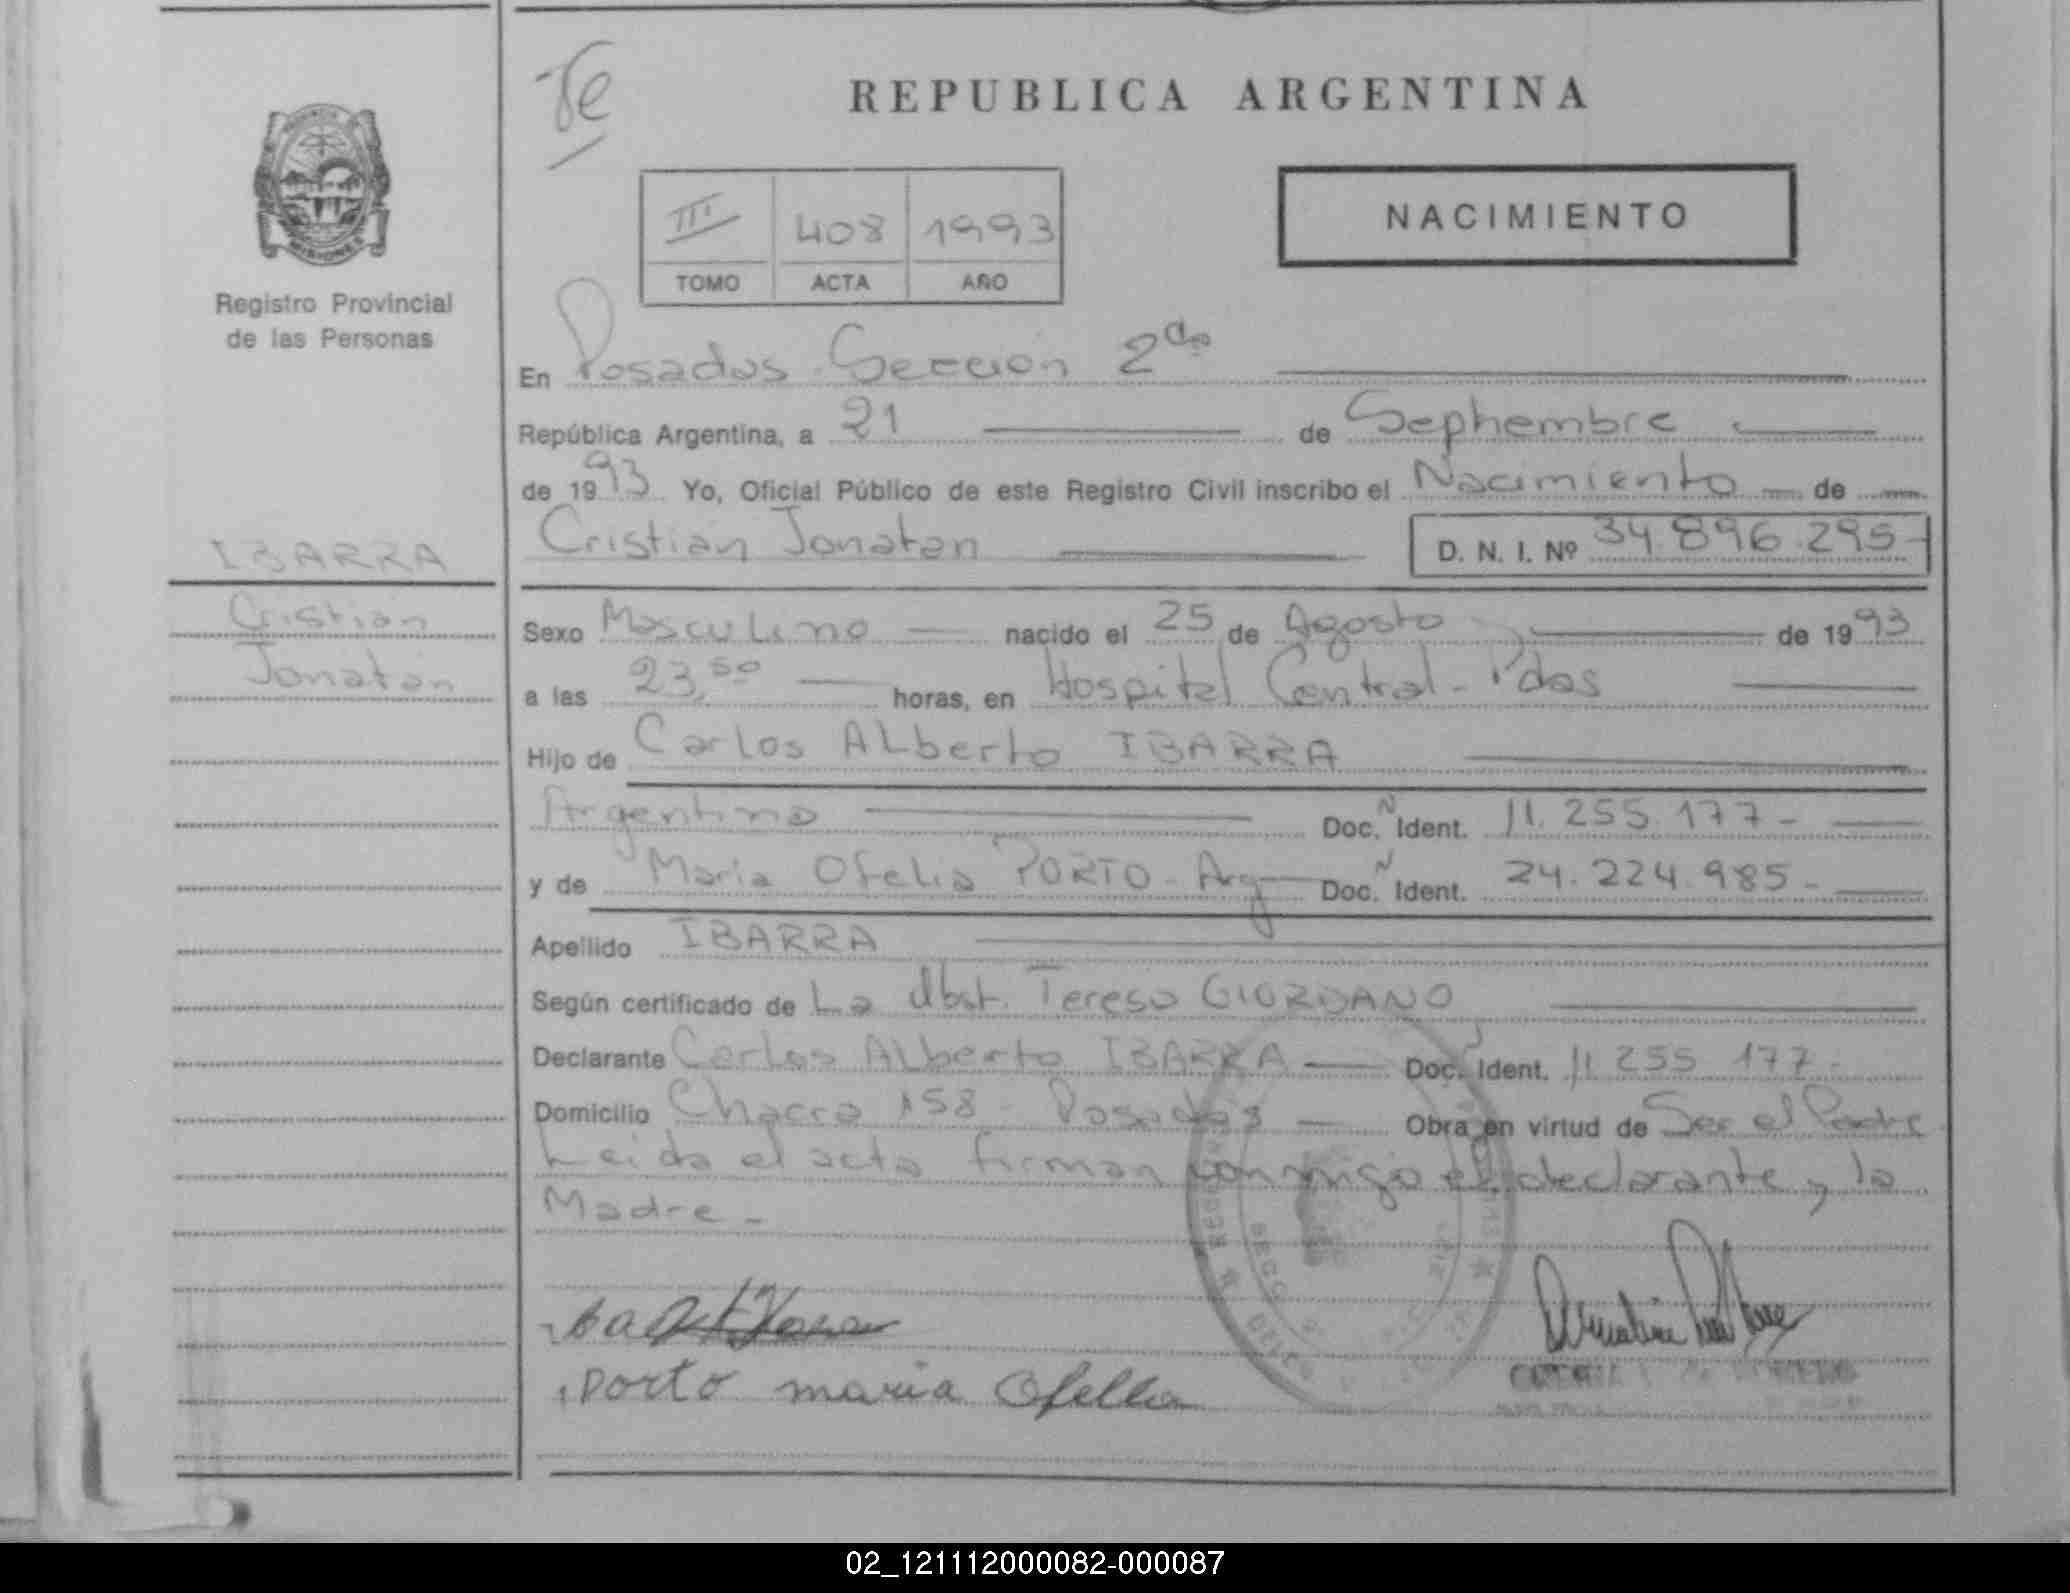 REPUBLICA ARGENTINA
MISIONES
Registro Provincial
de las Personas
III 408 1993
TOMO ACTA AÑO
NACIMIENTO
En Posadas Sección 2da
República Argentina, a 21 de Septiembre
de 1993 Yo, Oficial Público de este Registro Civil inscribo el Nacimiento de
IBARRA
Cristian Jonatan
D. N. I. Nº 34.896.295-
Cristian
Jonatan
Sexo Masculino nacido el 25 de Agosto de 1993
a las 23,50 horas, en Hospital Central - Pdas
Hijo de Carlos Alberto IBARRA
Argentino Doc. Ident. 11.255.177-
y de Maria Ofelia PORTO - Arg Doc. Ident. 24.224.985-
Apellido IBARRA
Según certificado de La Obst. Teresa GIORDANO
Declarante Carlos Alberto IBARRA Doc. Ident. 11.255.177-
Domicilio Chacra 158 - Posadas Obra en virtud de Ser el Padre
Leida el acta firman conmigo el declarante y la
Madre-
Porto maria Ofelia
02_121112000082-000087